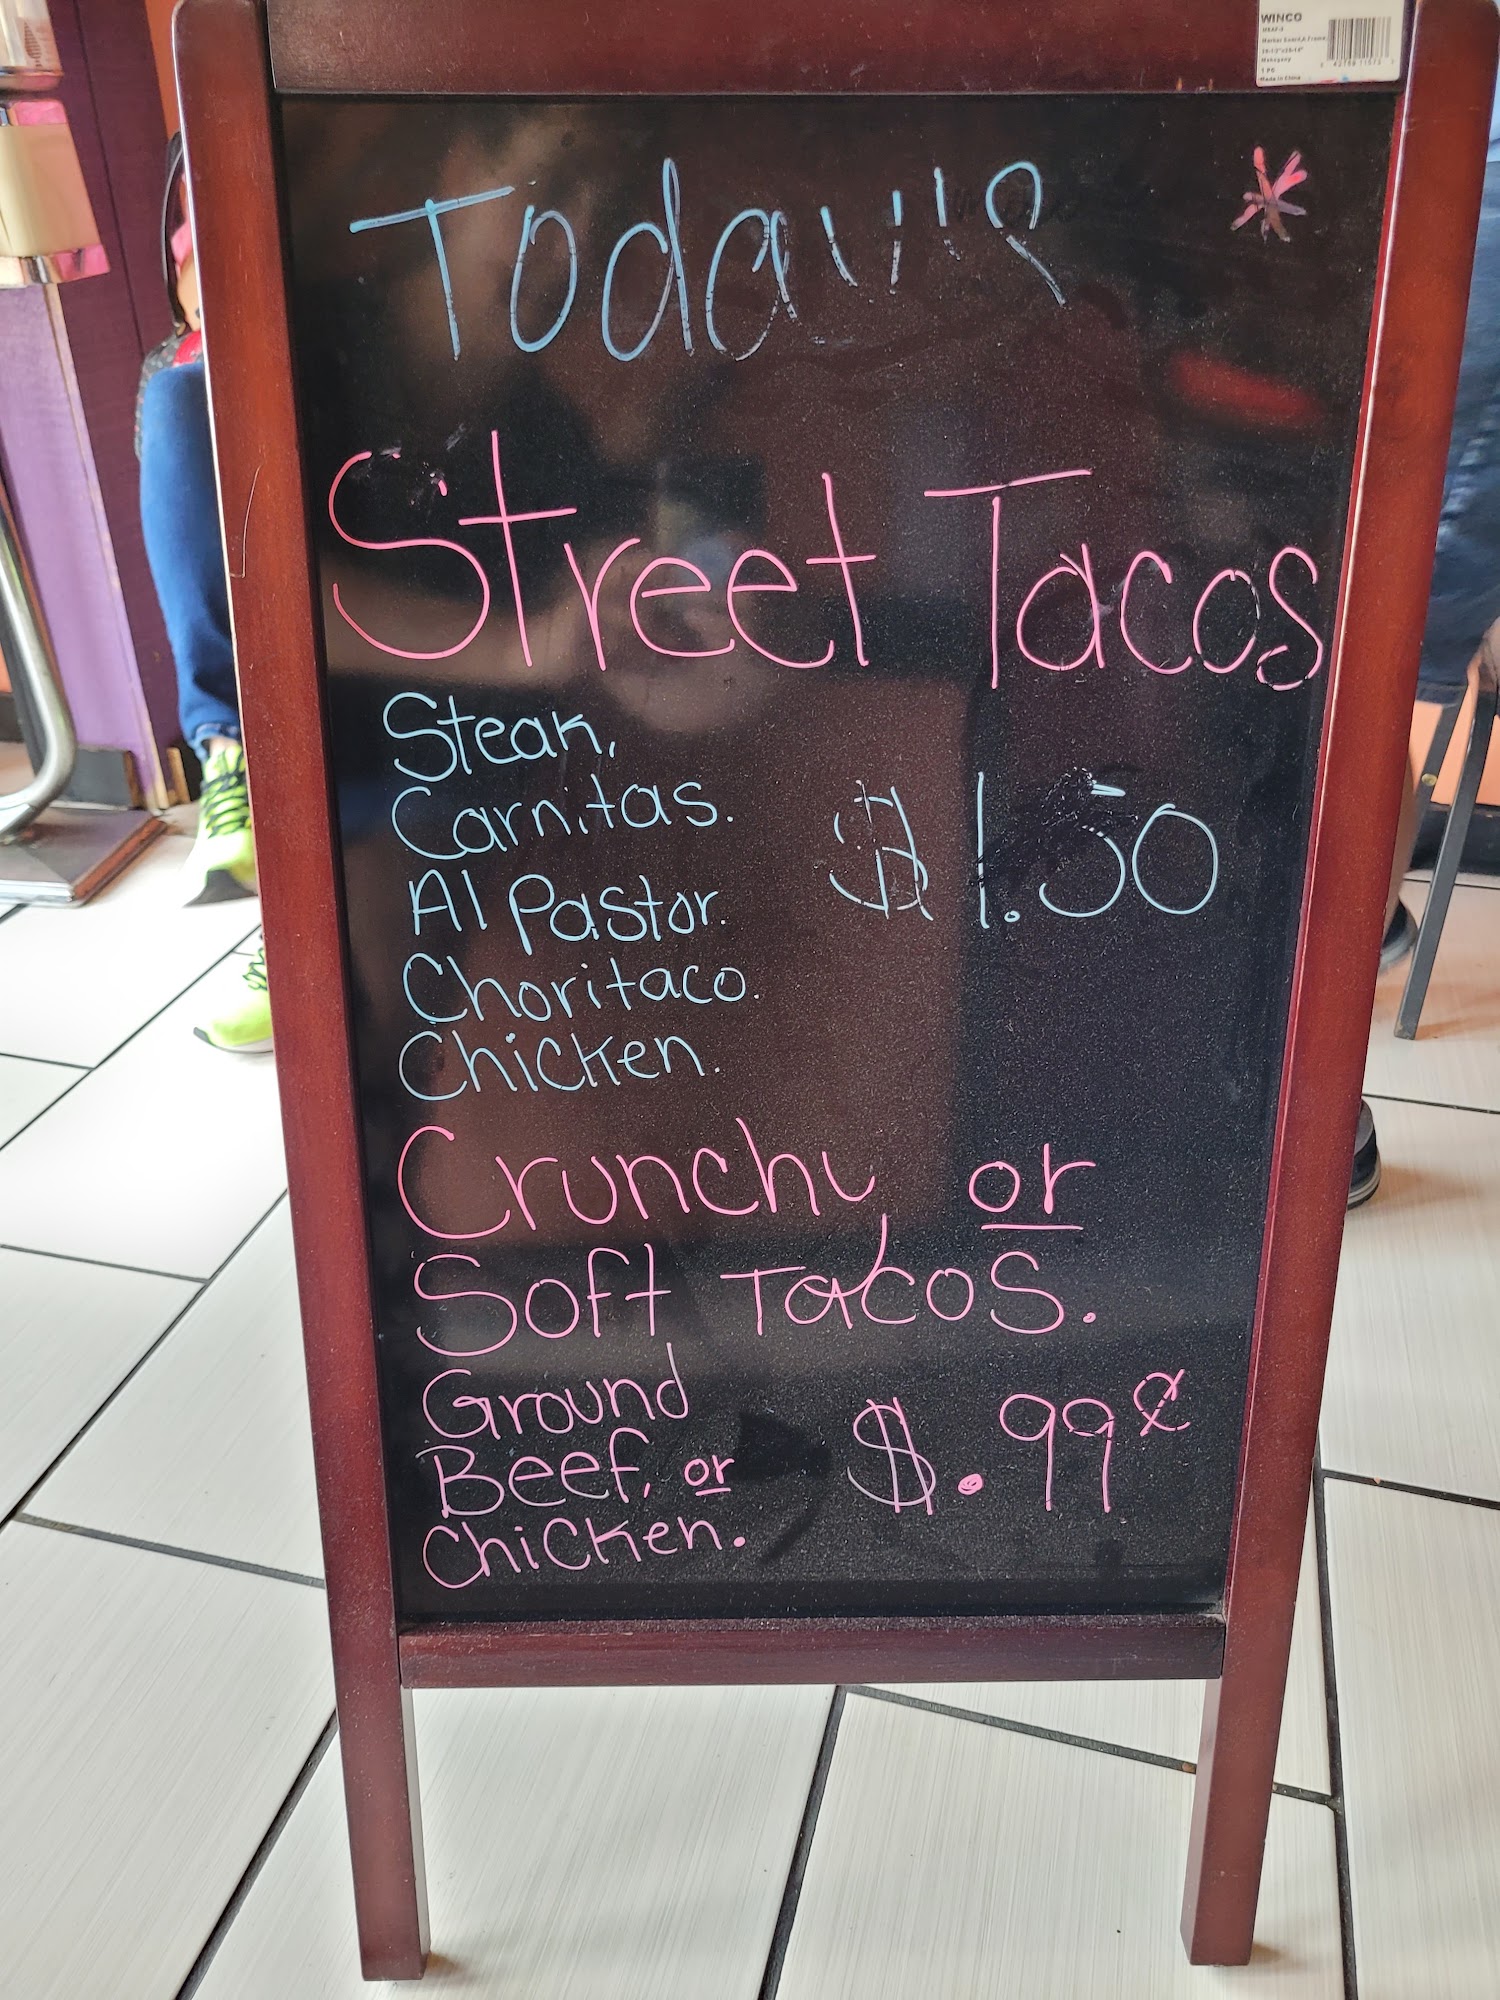 WINCO
Mahogany
1 PC
Made in China
Today's
*
Street Tacos
Steak,
Carnitas.
Al Pastor.
Choritaco.
Chicken.
$1.50
Crunchy or
Soft Tacos.
Ground
Beef, or
Chicken.
$.99¢